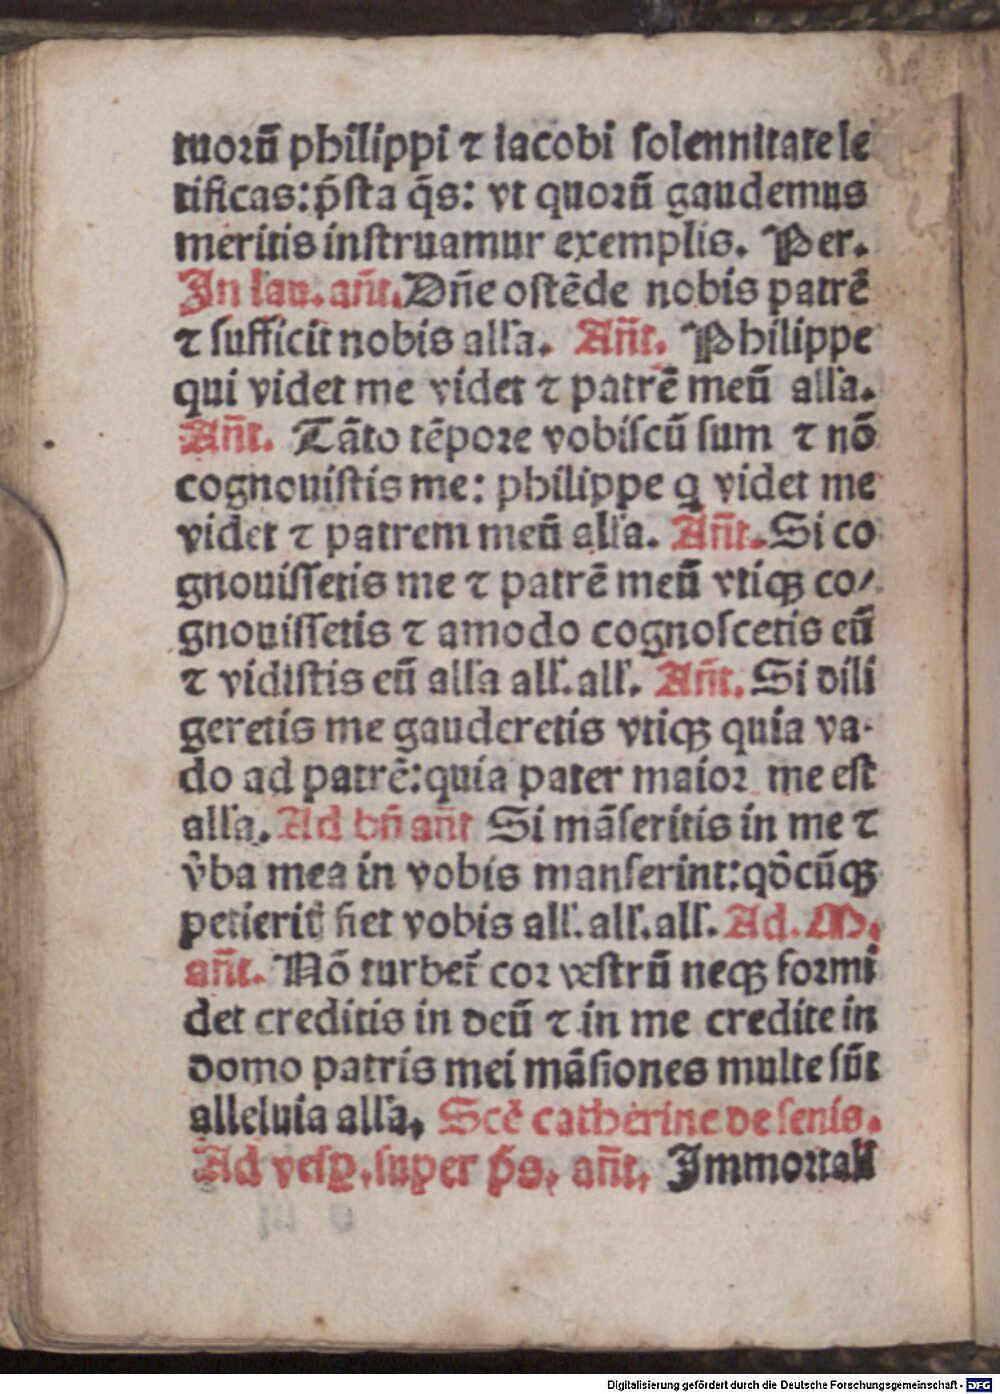 tuorū philippi ⁊ iacobi solennitate le
tificas: p̄sta q̄s: vt quorū gaudemus
meritis instruamur exemplis. Per.
In lau. añt. Dñe ostēde nobis patrē
⁊ sufficit nobis alľa. Añt. Philippe
qui videt me videt ⁊ patrē meū alľa.
Añt. Tāto tēpore vobiscū sum ⁊ nō
cognouistis me: philippe q videt me
videt ⁊ patrem meū alľa. Añt. Si co
gnouissetis me ⁊ patrē meū vtiqꝫ co/
gnouissetis ⁊ amodo cognoscetis eū
⁊ vidistis eū alľa all'. all'. Añt. Si dili
geretis me gauderetis vtiqꝫ quia va-
do ad patrē: quia pater maior me est
alľa. Ad bñ añt Si māseritis in me ⁊
v̾ba mea in vobis manserint: qđcūqꝫ
petierit᷑ fiet vobis all'. all'. all'. Ad. M.
añt. Nō turbet᷑ cor vestrū neqꝫ formi
det creditis in deū ⁊ in me credite in
domo patris mei māsiones multe sūt
alleluia alľa. Scē catherine de senis.
Ad vesꝑ. super p̄s. añt. Immortall'
Digitalisierung gefördert durch die Deutsche Forschungsgemeinschaft - DFG